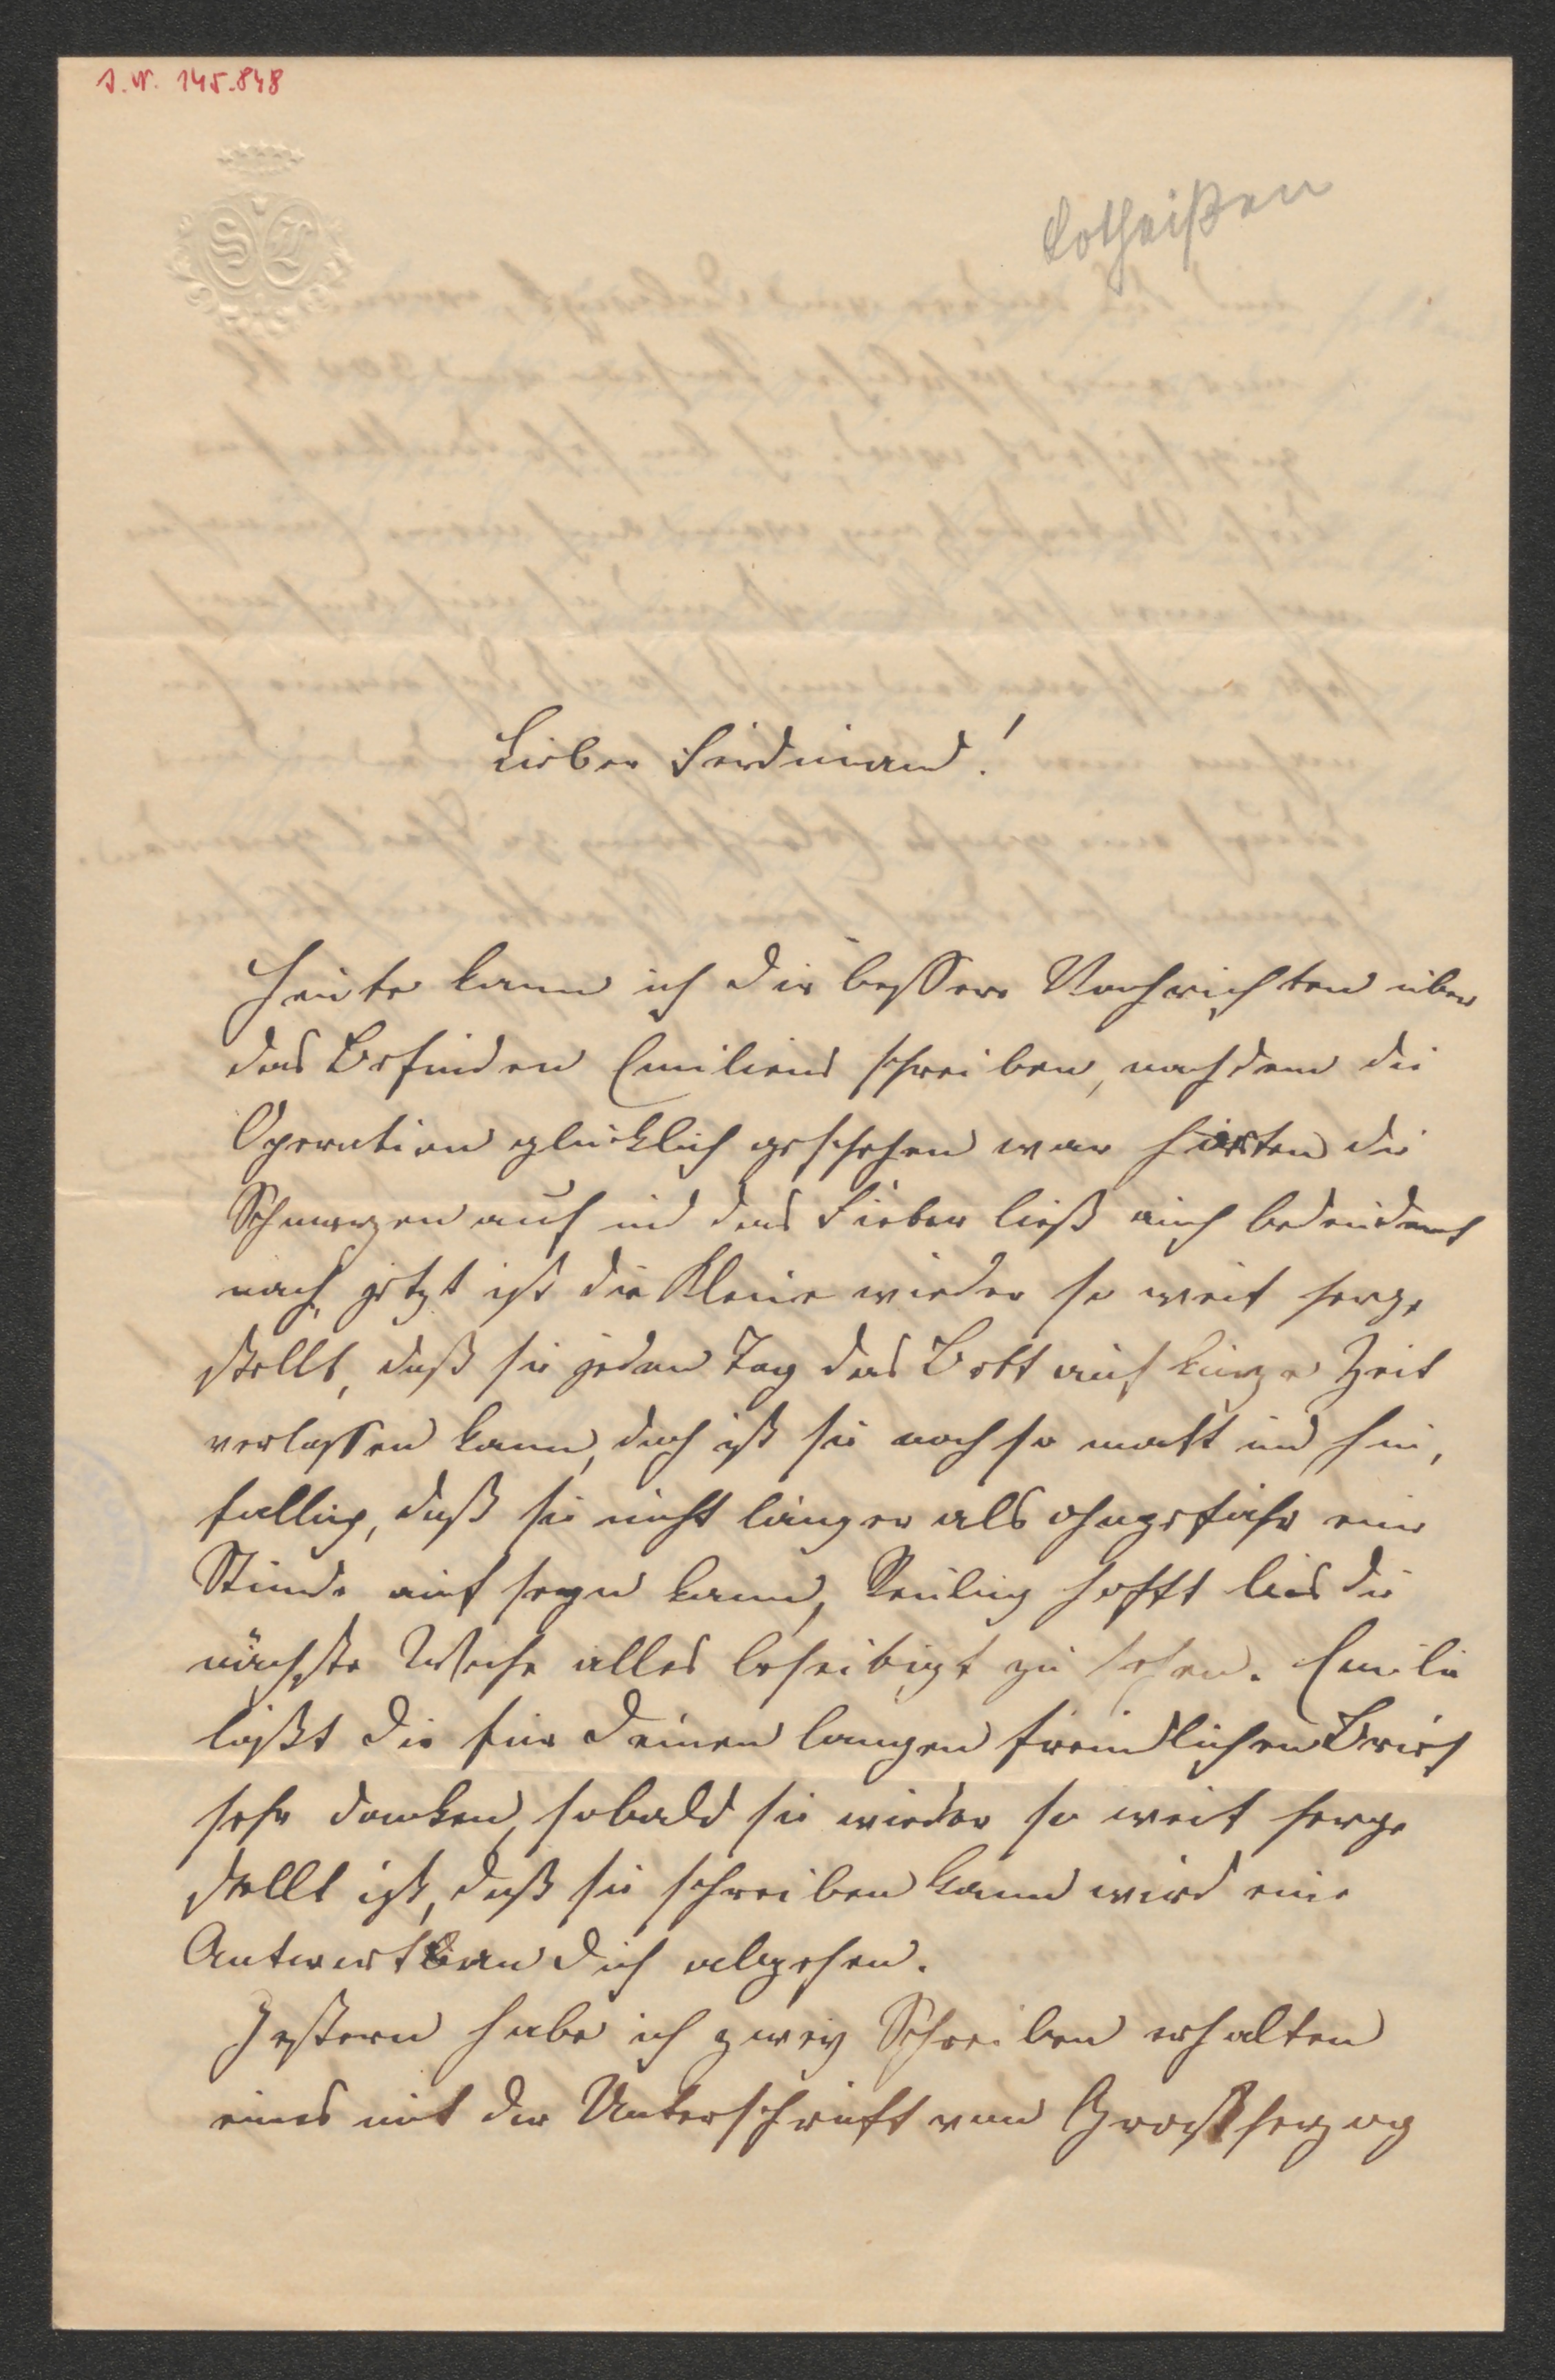 I. N. 145.848
SL
Lotheißen
Lieber Ferdinand!
Heute kann ich Dir bessere Nachrichten über
das Befinden Emiliens schreiben, nachdem die
Operation glücklich geschehen war hörten die
Schmerzen auf und das Fieber ließ auch bedeudend
nach, jetzt ist die Kleine wieder so weit herge
stellt, daß sie jeden Tag das Bett auf kurze Zeit
verlassen kann, doch ist sie noch so matt und hin,
fallig, daß sie nicht länger als ohngefähr eine
Stunde auf seyn kann, hofft bis die
nächste Woche alles beseitigt zu sehen. Emilie
läßt Dir für Deinen langen freundlichen Brief
sehr danken, sobald sie wieder so weit herge
stellt ist, daß sie schreiben kann wird eine
Antwort an Dich abgehen.
Gestern habe ich zwey Schreiben erhalten
eines mit der Unterschrift vom Großherzog